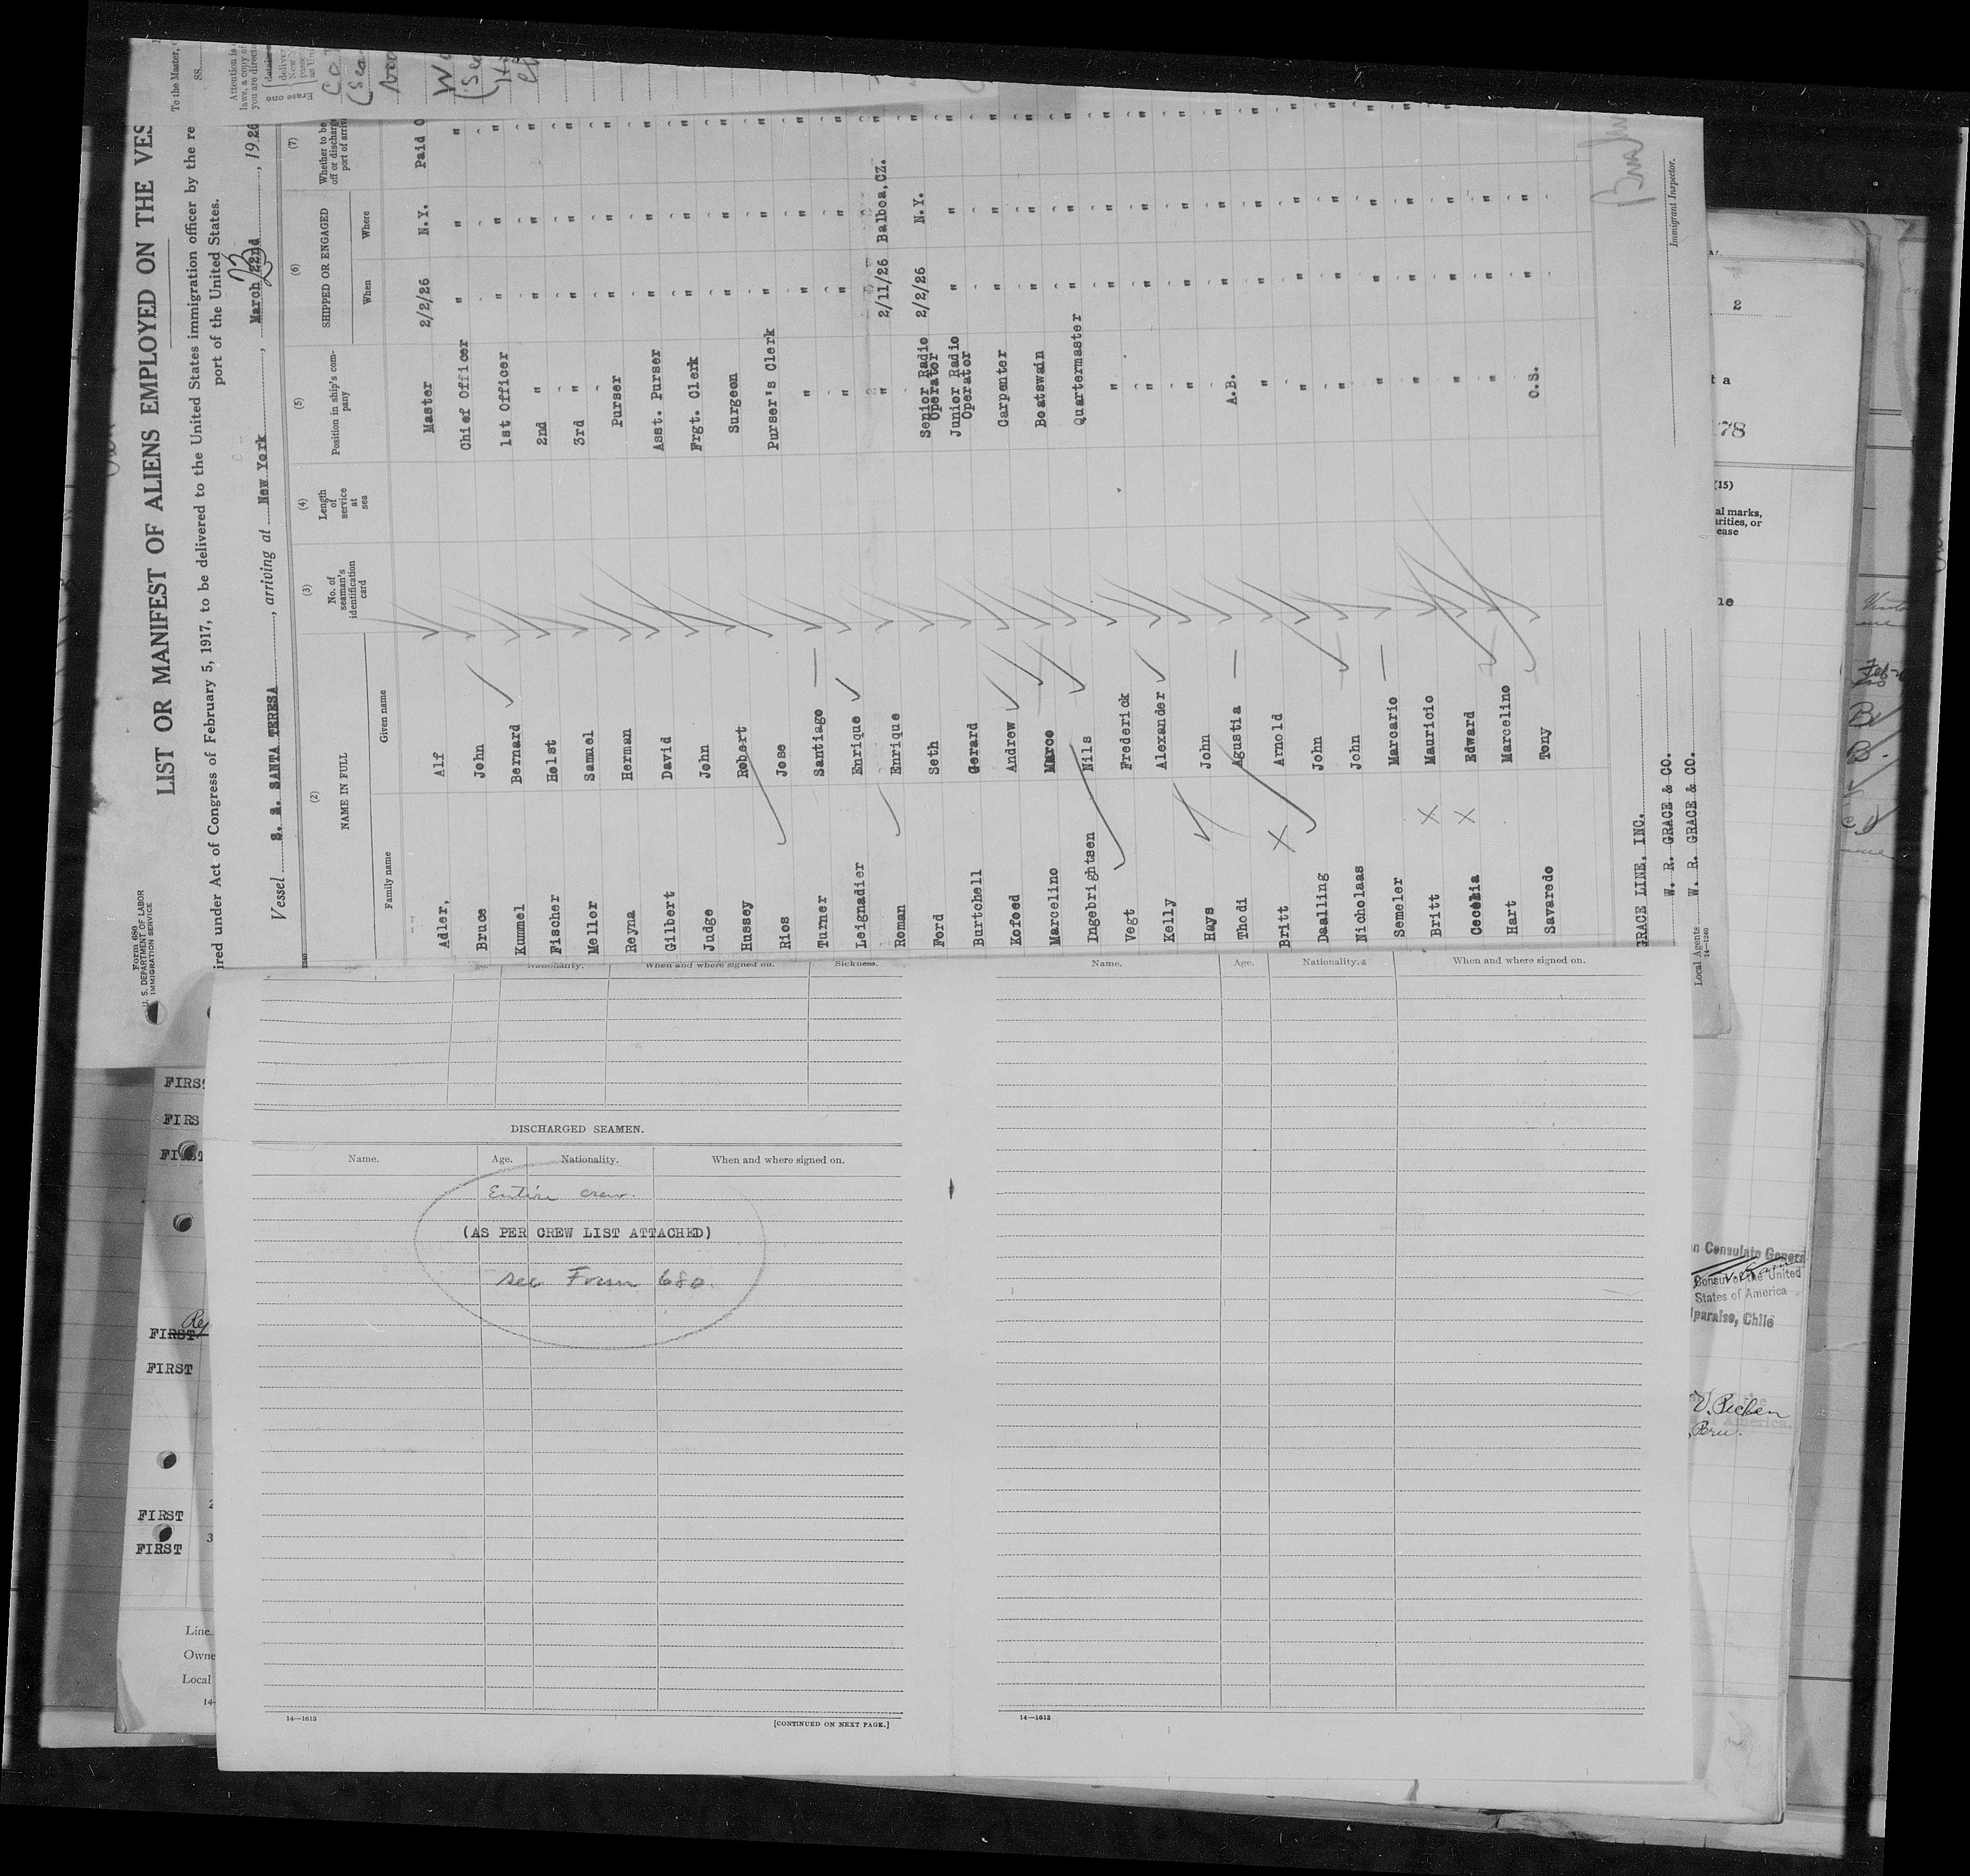 Form 680
U. S. DEPARTMENT OF LABOR
IMMIGRATION SERVICE
LIST OR MANIFEST OF ALIENS EMPLOYED ON THE VES
ired under Act of Congress of February 5, 1917, to be delivered to the United States immigration officer by the re
port of the United States.
Vessel S. S. SANTA TERESA, arriving at New York, March 22nd, 1926
23
(2) (3) (4) (5) (6) (7)
NAME IN FULL
Family name Given name
No. of seaman's identification card
Length of service at sea
Position in ship's company
SHIPPED OR ENGAGED
When Where
Whether to be
off or discharge
port of arriv
Adler, Alf Master 2/2/26 N.Y. Paid O
Bruce John Chief Officer " " "
Kummel Bernard 1st Officer " " "
Fischer Holst 2nd " " " "
Mellor Samuel 3rd " " " "
Reyna Herman Purser " " "
Gilbert David Asst. Purser " " "
Judge John Frgt. Clerk " " "
Hussey Robert Surgeon " " "
Rios Jose Purser's Clerk " " "
Turner Santiago " " " "
Leignadier Enrique " " " "
Roman Enrique " 2/11/26 Balboa, CZ. "
Ford Seth Senior Radio Operator 2/2/26 N.Y. "
Burtchell Gerard Junior Radio Operator " " "
Kofoed Andrew Carpenter " " "
Marcelino Marce Boatswain " " "
Ingebrightsen Nils Quartermaster " " "
Vegt Frederick " " " "
Kelly Alexander " " " "
Hays John " " " "
Thodi Agustia A.B. " " "
Britt Arnold " " " "
Daalling John " " " "
Nicholaas John " " " "
Semeler Marcario " " " "
Britt Mauricio " " " "
Cecelia Edward " " " "
Hart Marcelino " " " "
Savaredo Tony O.S. " " "
GRACE LINE, INC.
W. R. GRACE & CO.
Local Agents W. R. GRACE & CO.
14—1240
Immigrant Inspector.
To the Master,
88
Attention is
laws, a copy of
you are directe
Erase one
Nationality. When and where signed on. Sickness.
DISCHARGED SEAMEN.
Name. Age. Nationality. When and where signed on.
Entire crew.
(AS PER CREW LIST ATTACHED)
see Form 680.
14—1613
[CONTINUED ON NEXT PAGE.]
Name. Age. Nationality. When and where signed on.
14—1613
FIRST
FIRS
FIRST
FIRST
FIRST
FIRST
FIRST
3
Line
Owne
Local
14-
2
t a
78
(15)
al marks,
arities, or
ease
ne
n Consulate Genera
Consul of the United
States of America
lparaiso, Chile
V. Pecben
Peru.